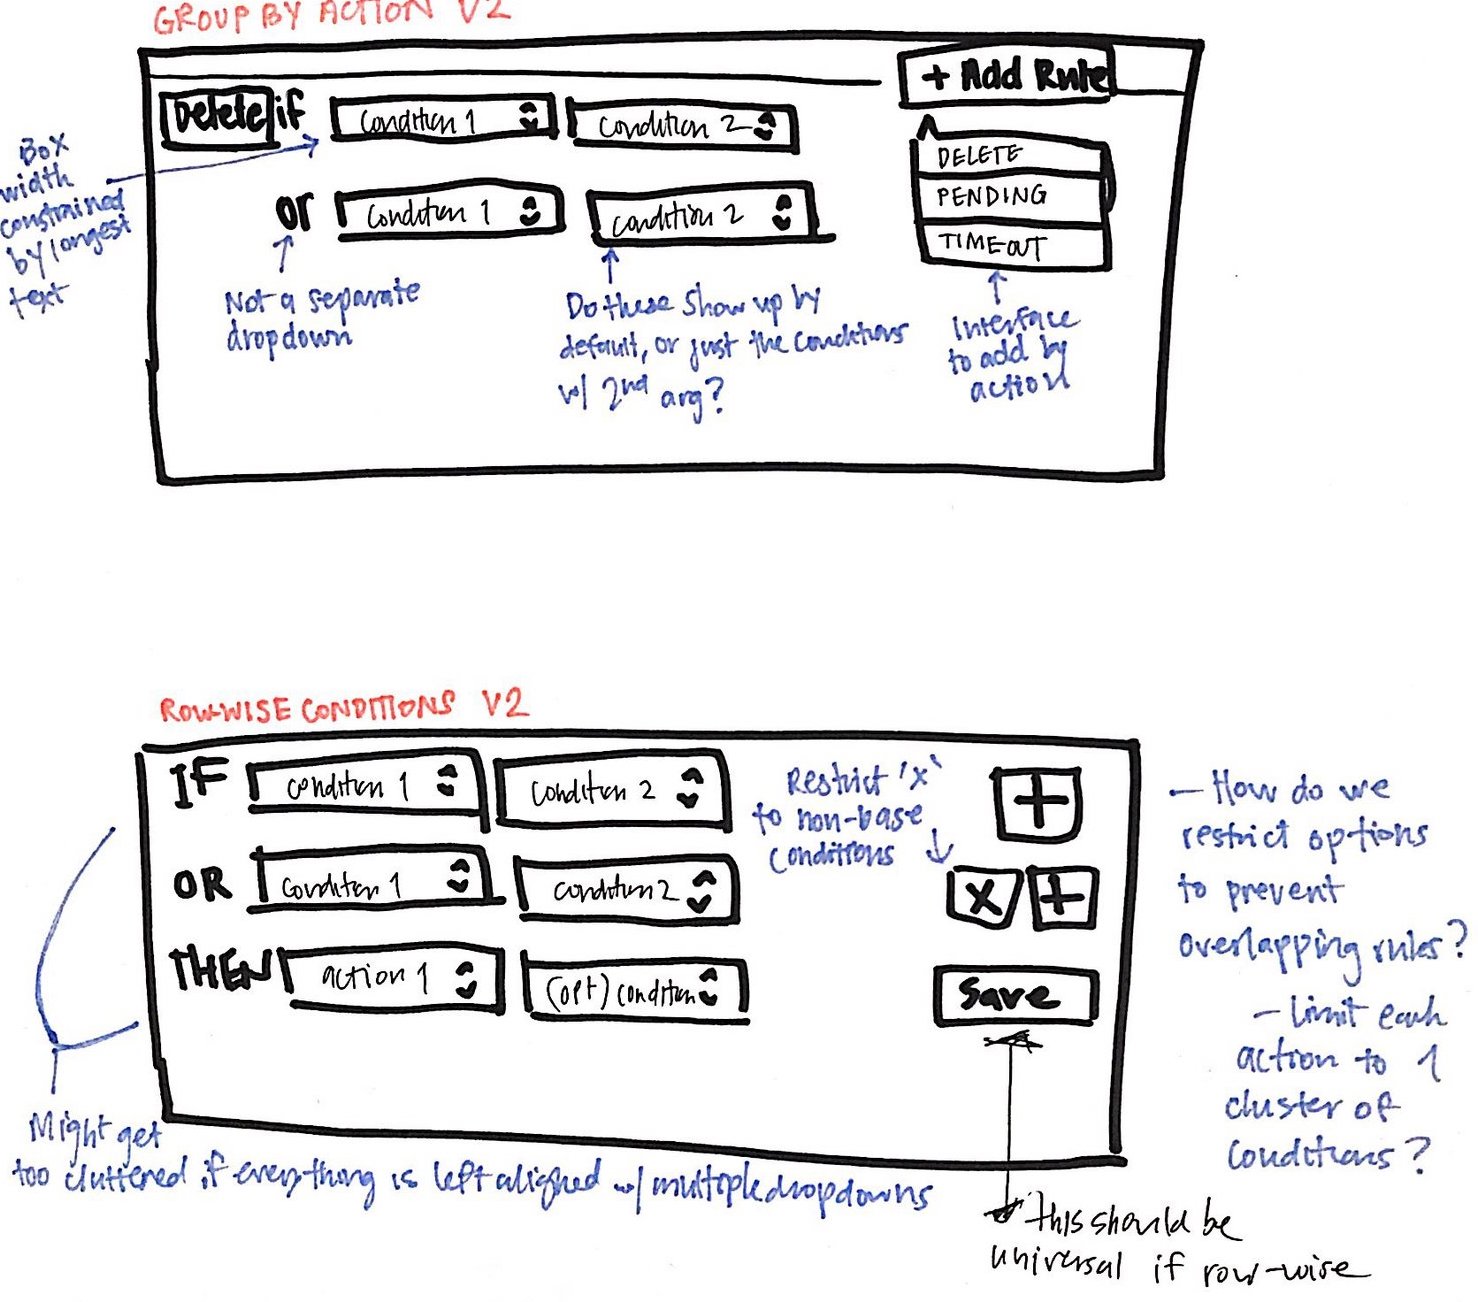 GROUP BY ACTION V2
+ Add Rule
Delete if
Condition 1
Condition 2
DELETE
PENDING
TIMEOUT
or
Condition 1
Condition 2
Box
width
constrained
by longest
text
Not a separate
dropdown
Do these show up by
default, or just the conditions
w/ 2nd arg?
Interface
to add by
action
ROW-WISE CONDITIONS V2
IF
condition 1
condition 2
Restrict 'x'
to non-base
conditions
+
OR
condition 1
condition 2
X
+
THEN
action 1
(opt) condition
Save
- How do we
restrict options
to prevent
overlapping rules?
- Limit each
action to 1
cluster of
conditions?
Might get
too cluttered if everything is left aligned w/ multiple dropdowns
this should be
universal if row-wise